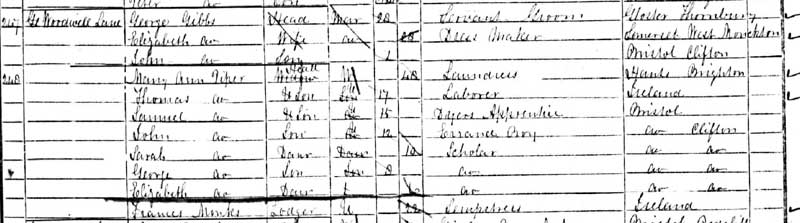 Piper do Son
247 Gt Woodwell Lane George Gibbs Head Mar 28 Servant Groom Gloster Thornbury
Elizabeth do Wife do 28 Dress Maker Somerset West Monckton
John do Son 1 Bristol Clifton
248 Mary Ann Piper Head Widow W 48 Laundress Hants Brighton
Thomas do Son 17 Laborer Ireland
Samuel do Son 15 Dyers Apprentice Bristol
John do Son 12 Errance Boy do Clifton
Sarah do Daur Daur 10 Scholar do do
George do Son Son 8 do do do
Elizabeth do Daur do do do
Frances Monks Lodger 22 Sempstress Ireland